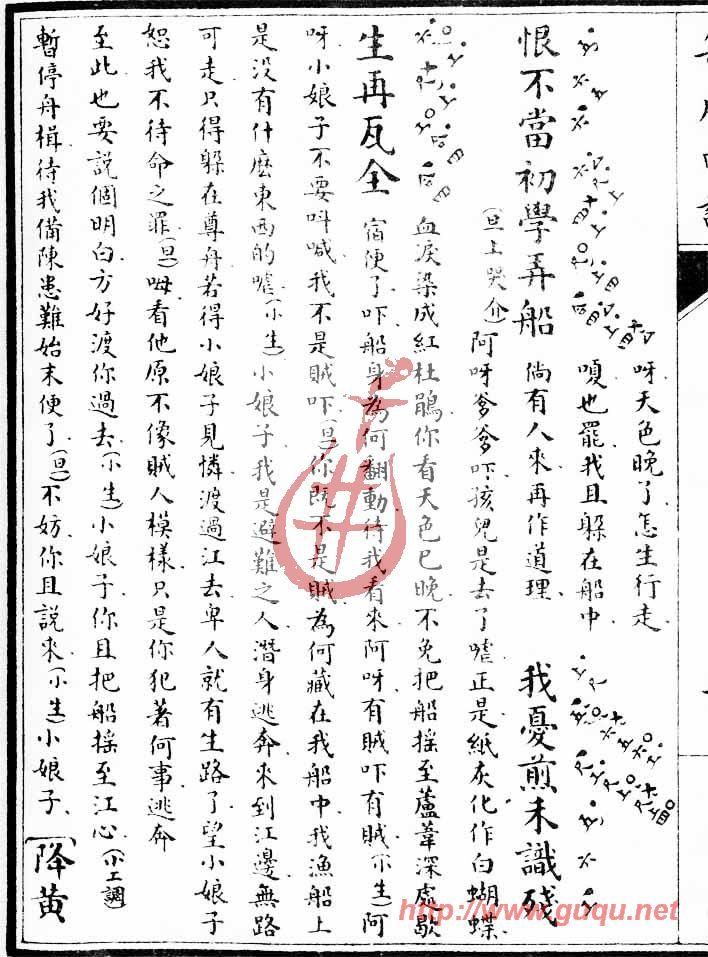 恨不當初學弄船
呀天色晚了怎生行走
嗄也罷我且躲在船中
倘有人來再作道理
我憂煎未識殘
生再瓦全
(旦上哭介)阿呀爹爹吓孩兒是去了嘘正是紙灰化作白蝴蝶
血淚染成紅杜鵑你看天色已晚不免把船搖至蘆葦深處歇
宿便了吓船身為何翻動待我看來阿呀有賊吓有賊(小生)阿
呀小娘子不要呌喊我不是賊吓(旦)你既不是賊為何藏在我船中我漁船上
是没有什麽東西的嘘(小生)小娘子我是避難之人潛身逃奔來到江邊無路
可走只得躲在尊舟若得小娘子見憐渡過江去卑人就有生路了望小娘子
恕我不待命之罪(旦)呣看他原不像賊人模樣只是你犯著何事逃奔
至此也要說個明白方好渡你過去(小生)小娘子你且把船搖至江心(小工調)
暫停舟楫待我備陳患難始末便了(旦)不妨你且說來(小生)小娘子 降黃
http://www.guqu.net